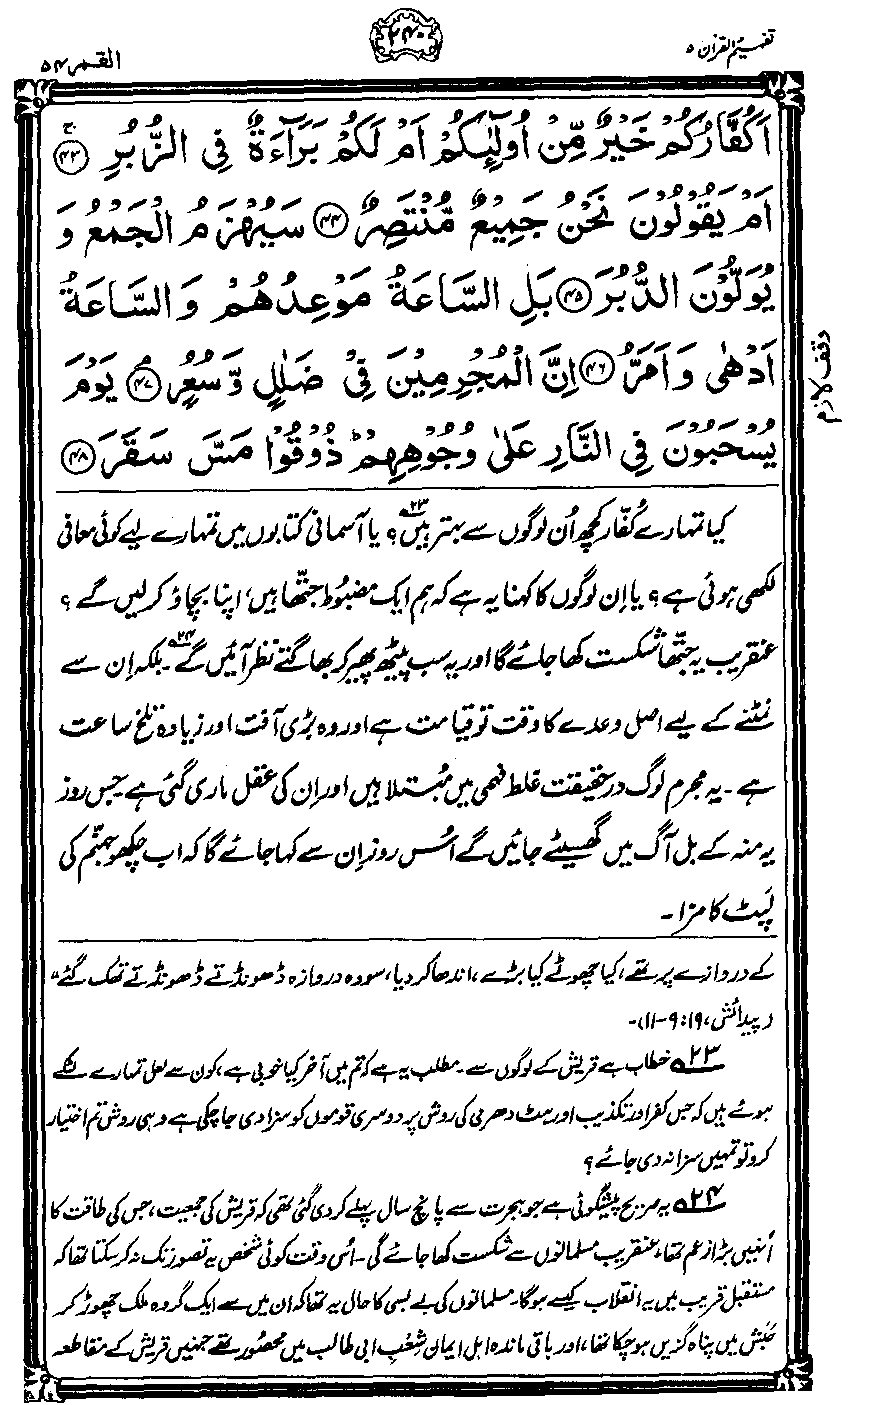 تفہیم القرآن ۵
۲۴۰
القمر ۵۴
اَكُفَّارُكُمْ خَيْرٌ مِّنْ اُولٰٓئِكُمْ اَمْ لَكُمْ بَرَآءَةٌ فِي الزُّبُرِ ﴿۴۳﴾ ج
اَمْ يَقُوْلُوْنَ نَحْنُ جَمِيْعٌ مُّنْتَصِرٌ ﴿۴۴﴾ سَيُهْزَمُ الْجَمْعُ وَ
يُوَلُّوْنَ الدُّبُرَ ﴿۴۵﴾ بَلِ السَّاعَةُ مَوْعِدُهُمْ وَالسَّاعَةُ
اَدْهٰى وَاَمَرُّ ﴿۴۶﴾ اِنَّ الْمُجْرِمِيْنَ فِيْ ضَلٰلٍ وَّسُعُرٍ ﴿۴۷﴾ م يَوْمَ
وقف لازم
يُسْحَبُوْنَ فِي النَّارِ عَلٰى وُجُوْهِهِمْ ط ذُوْقُوْا مَسَّ سَقَرَ ﴿۴۸﴾
کیا تمہارے کُفّار کچھ اُن لوگوں سے بہتر ہیں۲۳؟ یا آسمانی کتابوں میں تمہارے لیے کوئی معافی
لکھی ہوئی ہے؟ یا اِن لوگوں کا کہنا یہ ہے کہ ہم ایک مضبُوط جتھا ہیں، اپنا بچاؤ کر لیں گے؟
عنقریب یہ جتھّا شکست کھا جائے گا اور یہ سب پیٹھ پھیر کر بھاگتے نظر آئیں گے۲۴۔ بلکہ اِن سے
نمٹنے کے لیے اصل وعدے کا وقت تو قیامت ہے اور وہ بڑی آفت اور زیادہ تلخ ساعت
ہے۔ یہ مجرم لوگ درحقیقت غلط فہمی میں مُبتلا ہیں اور اِن کی عقل ماری گئی ہے۔ جس روز
یہ منہ کے بل آگ میں گھسیٹے جائیں گے اُس روز اِن سے کہا جائے گا کہ اب چکھو جہنّم کی
لَپَٹ کا مزا۔
کے دروازے پر تھے، کیا چھوٹے کیا بڑے، اندھا کر دیا، سو وہ دروازہ ڈھونڈتے ڈھونڈتے تھک گئے"
(پیدائش، ۱۹: ۹-۱۱)۔
۲۳؎ خطاب ہے قریش کے لوگوں سے۔ مطلب یہ ہے کہ تم میں آخر کیا خوبی ہے، کون سے لعل تمہارے لٹکے
ہوئے ہیں کہ جس کفر اور تکذیب اور ہٹ دھرمی کی روش پر دوسری قوموں کو سزا دی جا چکی ہے وہی روش تم اختیار
کرو تو تمہیں سزا نہ دی جائے؟
۲۴؎ یہ صریح پیشگوئی ہے جو ہجرت سے پانچ سال پہلے کر دی گئی تھی کہ قریش کی جمعیت، جس کی طاقت کا
اُنہیں بڑا زعم تھا، عنقریب مسلمانوں سے شکست کھا جائے گی۔ اُس وقت کوئی شخص یہ تصور تک نہ کر سکتا تھا کہ
مستقبل قریب میں یہ انقلاب کیسے ہوگا۔ مسلمانوں کی بے بسی کا حال یہ تھا کہ ان میں سے ایک گروہ ملک چھوڑ کر
حَبَش میں پناہ گزیں ہو چکا تھا، اور باقی ماندہ اہلِ ایمان شِعْبِ ابی طالب میں محصُور تھے جنہیں قریش کے مقاطعہ